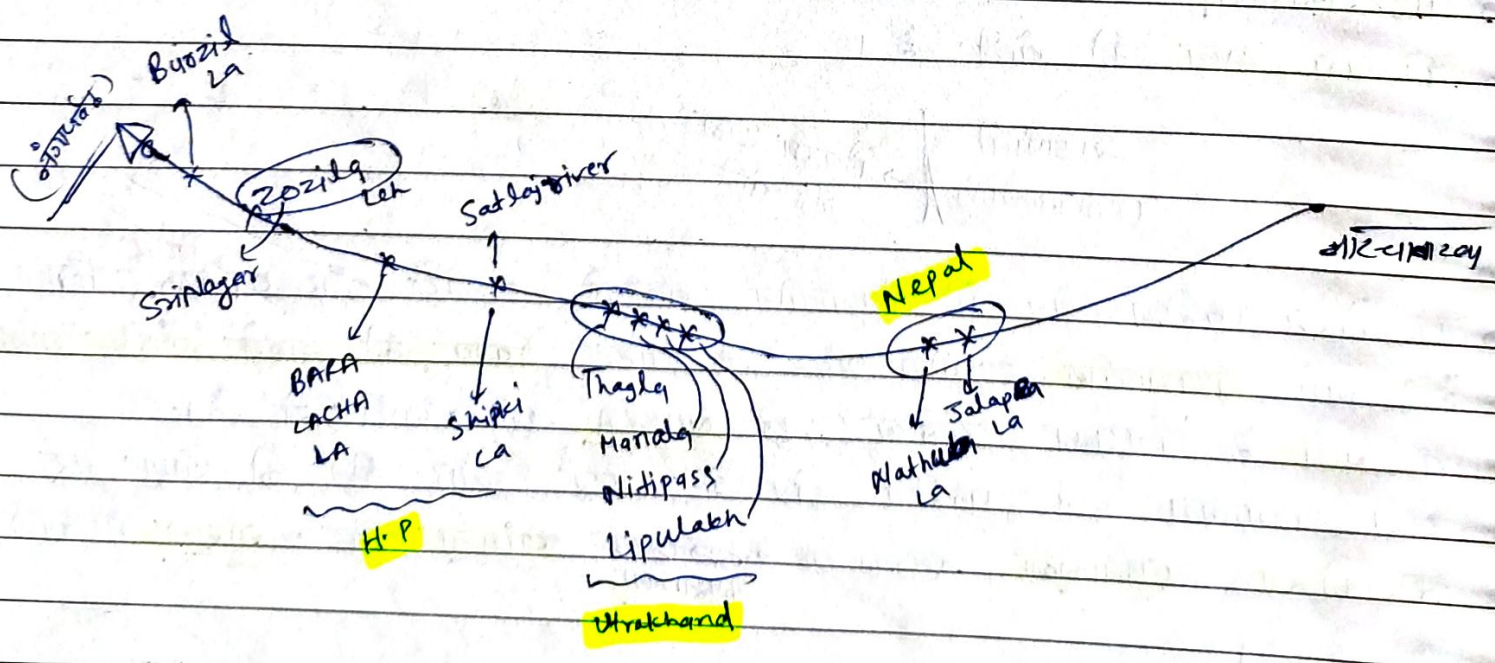 Burzil
La
(नंगापर्वत)
Zozila
Leh
SriNagar
Satlaj river
BARA
LACHA
LA
Shipki
La
H.P
Thagla
Manala
Nitipass
Lipulakh
Utrakhand
Nepal
Nathu
La
Jalapa
La